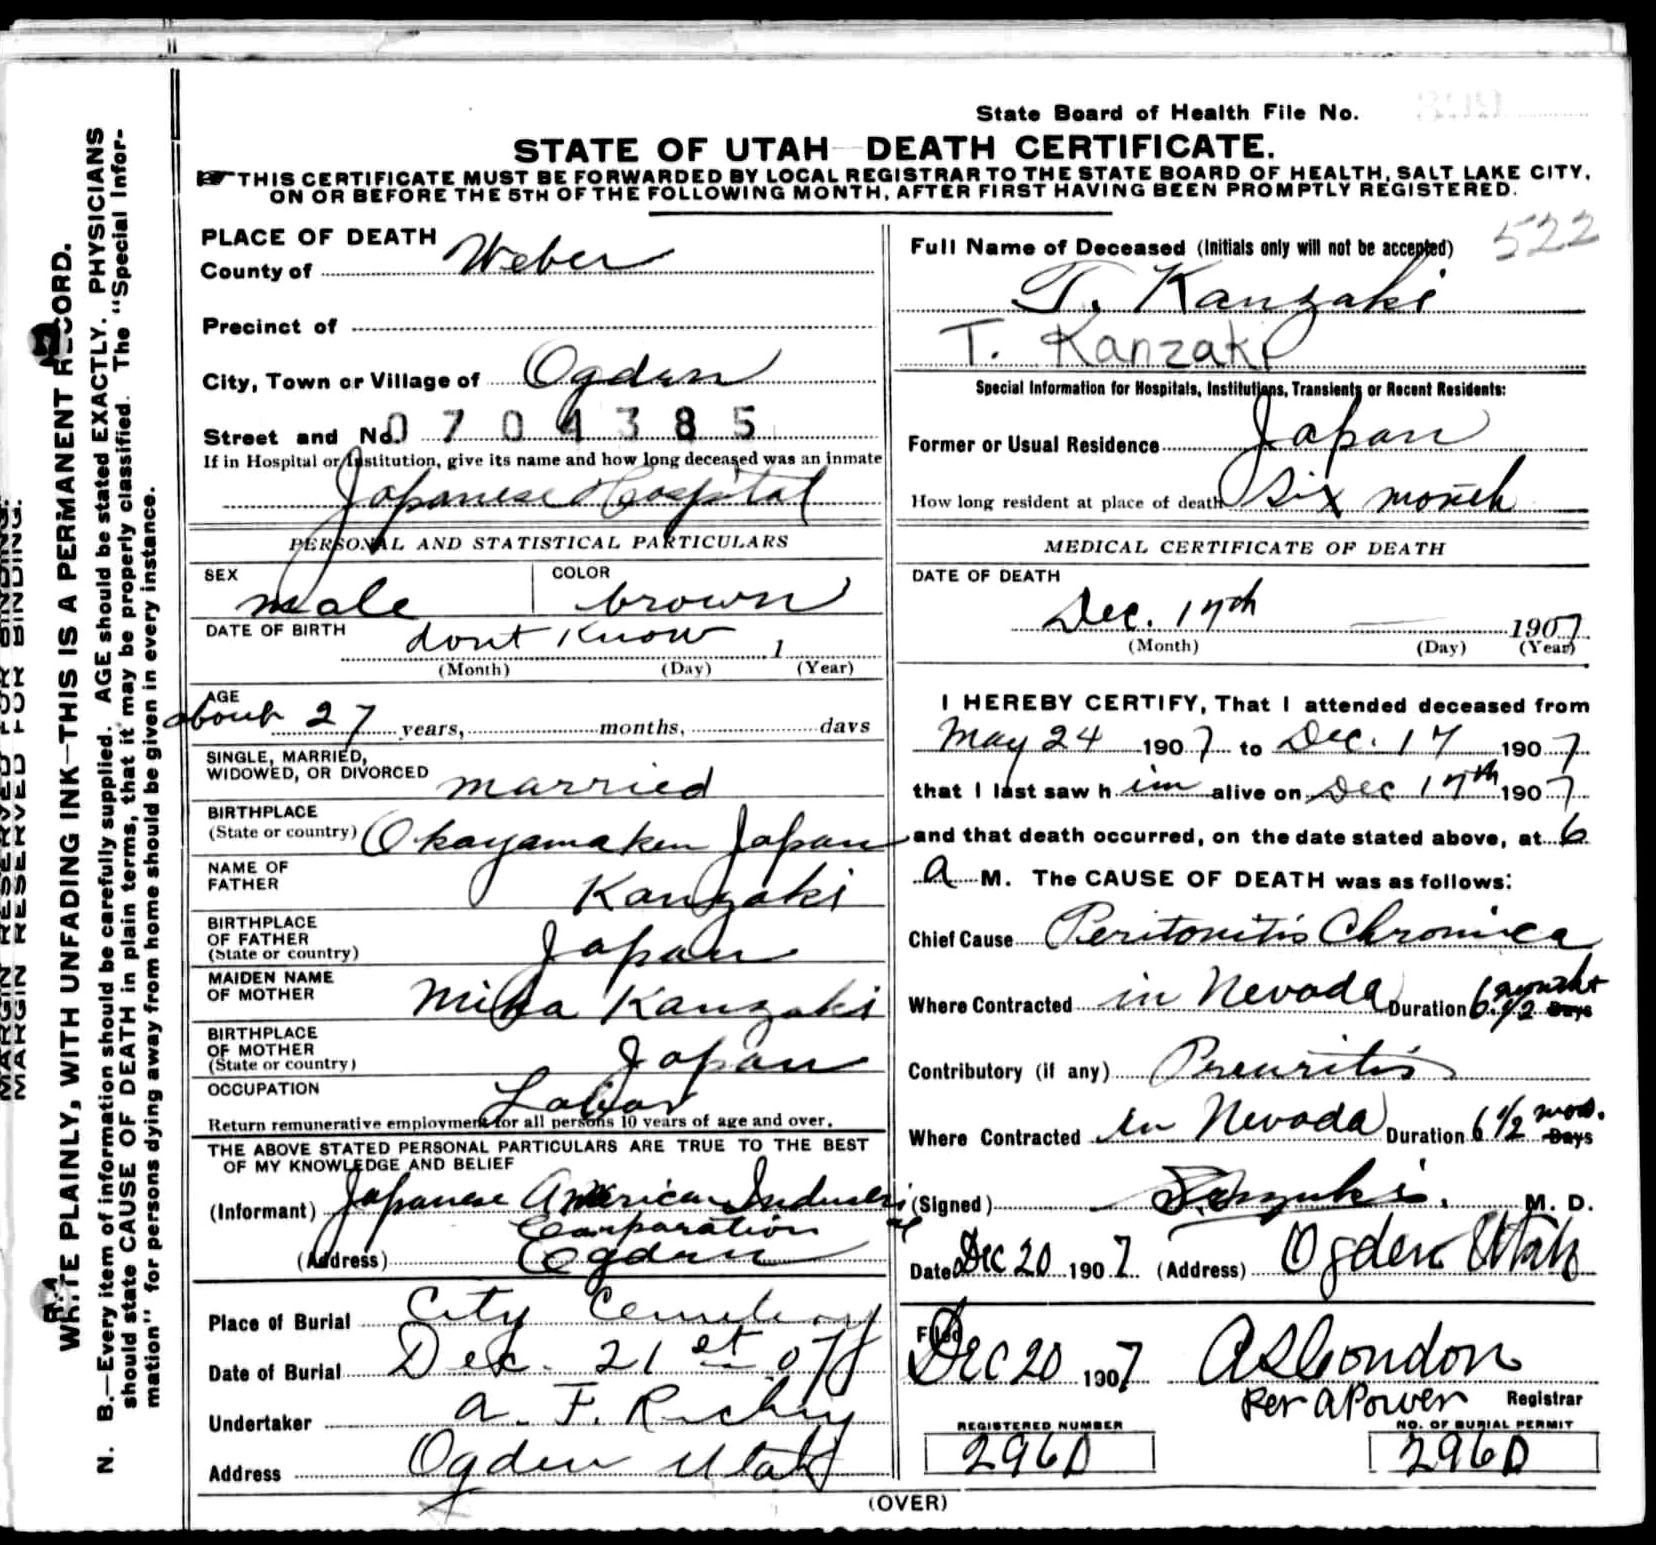 State Board of Health File No.
STATE OF UTAH—DEATH CERTIFICATE.
THIS CERTIFICATE MUST BE FORWARDED BY LOCAL REGISTRAR TO THE STATE BOARD OF HEALTH, SALT LAKE CITY,
ON OR BEFORE THE 5TH OF THE FOLLOWING MONTH, AFTER FIRST HAVING BEEN PROMPTLY REGISTERED.
MARGIN RESERVED FOR BINDING.
MARGIN RESERVED FOR BINDING.
WRITE PLAINLY, WITH UNFADING INK—THIS IS A PERMANENT RECORD.
N. B.—Every item of information should be carefully supplied. AGE should be stated EXACTLY. PHYSICIANS
should state CAUSE OF DEATH in plain terms, that it may be properly classified. The "Special Infor-
mation" for persons dying away from home should be given in every instance.
PLACE OF DEATH
County of Weber
Precinct of
City, Town or Village of Ogden
Street and No. 0704385
If in Hospital or Institution, give its name and how long deceased was an inmate
Japanese Hospital
PERSONAL AND STATISTICAL PARTICULARS
SEX COLOR
male brown
DATE OF BIRTH dont Know 1
(Month) (Day) (Year)
AGE
about 27 years, months, days
SINGLE, MARRIED,
WIDOWED, OR DIVORCED married
BIRTHPLACE
(State or country) Okayamaken Japan
NAME OF
FATHER Kanzaki
BIRTHPLACE
OF FATHER
(State or country) Japan
MAIDEN NAME
OF MOTHER Kanzaki
BIRTHPLACE
OF MOTHER
(State or country) Japan
OCCUPATION Labor
Return remunerative employment for all persons 10 years of age and over.
THE ABOVE STATED PERSONAL PARTICULARS ARE TRUE TO THE BEST
OF MY KNOWLEDGE AND BELIEF
(Informant) Japanese American Industrial
Corporation
(Address) Ogden
Place of Burial City Cemetery
Date of Burial Dec. 21st 07
Undertaker A. F.
Address Ogden Utah
522
Full Name of Deceased (Initials only will not be accepted)
T. Kanzaki
T. Kanzaki
Special Information for Hospitals, Institutions, Transients or Recent Residents:
Former or Usual Residence Japan
How long resident at place of death Six month
MEDICAL CERTIFICATE OF DEATH
DATE OF DEATH
Dec. 17th 1907
(Month) (Day) (Year)
I HEREBY CERTIFY, That I attended deceased from
May 24 1907 to Dec. 17 1907
that I last saw h im alive on Dec 17th 1907
and that death occurred, on the date stated above, at 6
a M. The CAUSE OF DEATH was as follows:
Chief Cause Peritonitis Chronica
Where Contracted in Nevada Duration 6 1/2 Days
Contributory (if any)
Where Contracted in Nevada Duration 6 1/2 mos. Days
(Signed) M. D.
Date Dec 20 1907 (Address) Ogden Utah
Filed
Dec 20 1907 A S Condon
Per A Power Registrar
REGISTERED NUMBER NO. OF BURIAL PERMIT
296D 296D
(OVER)